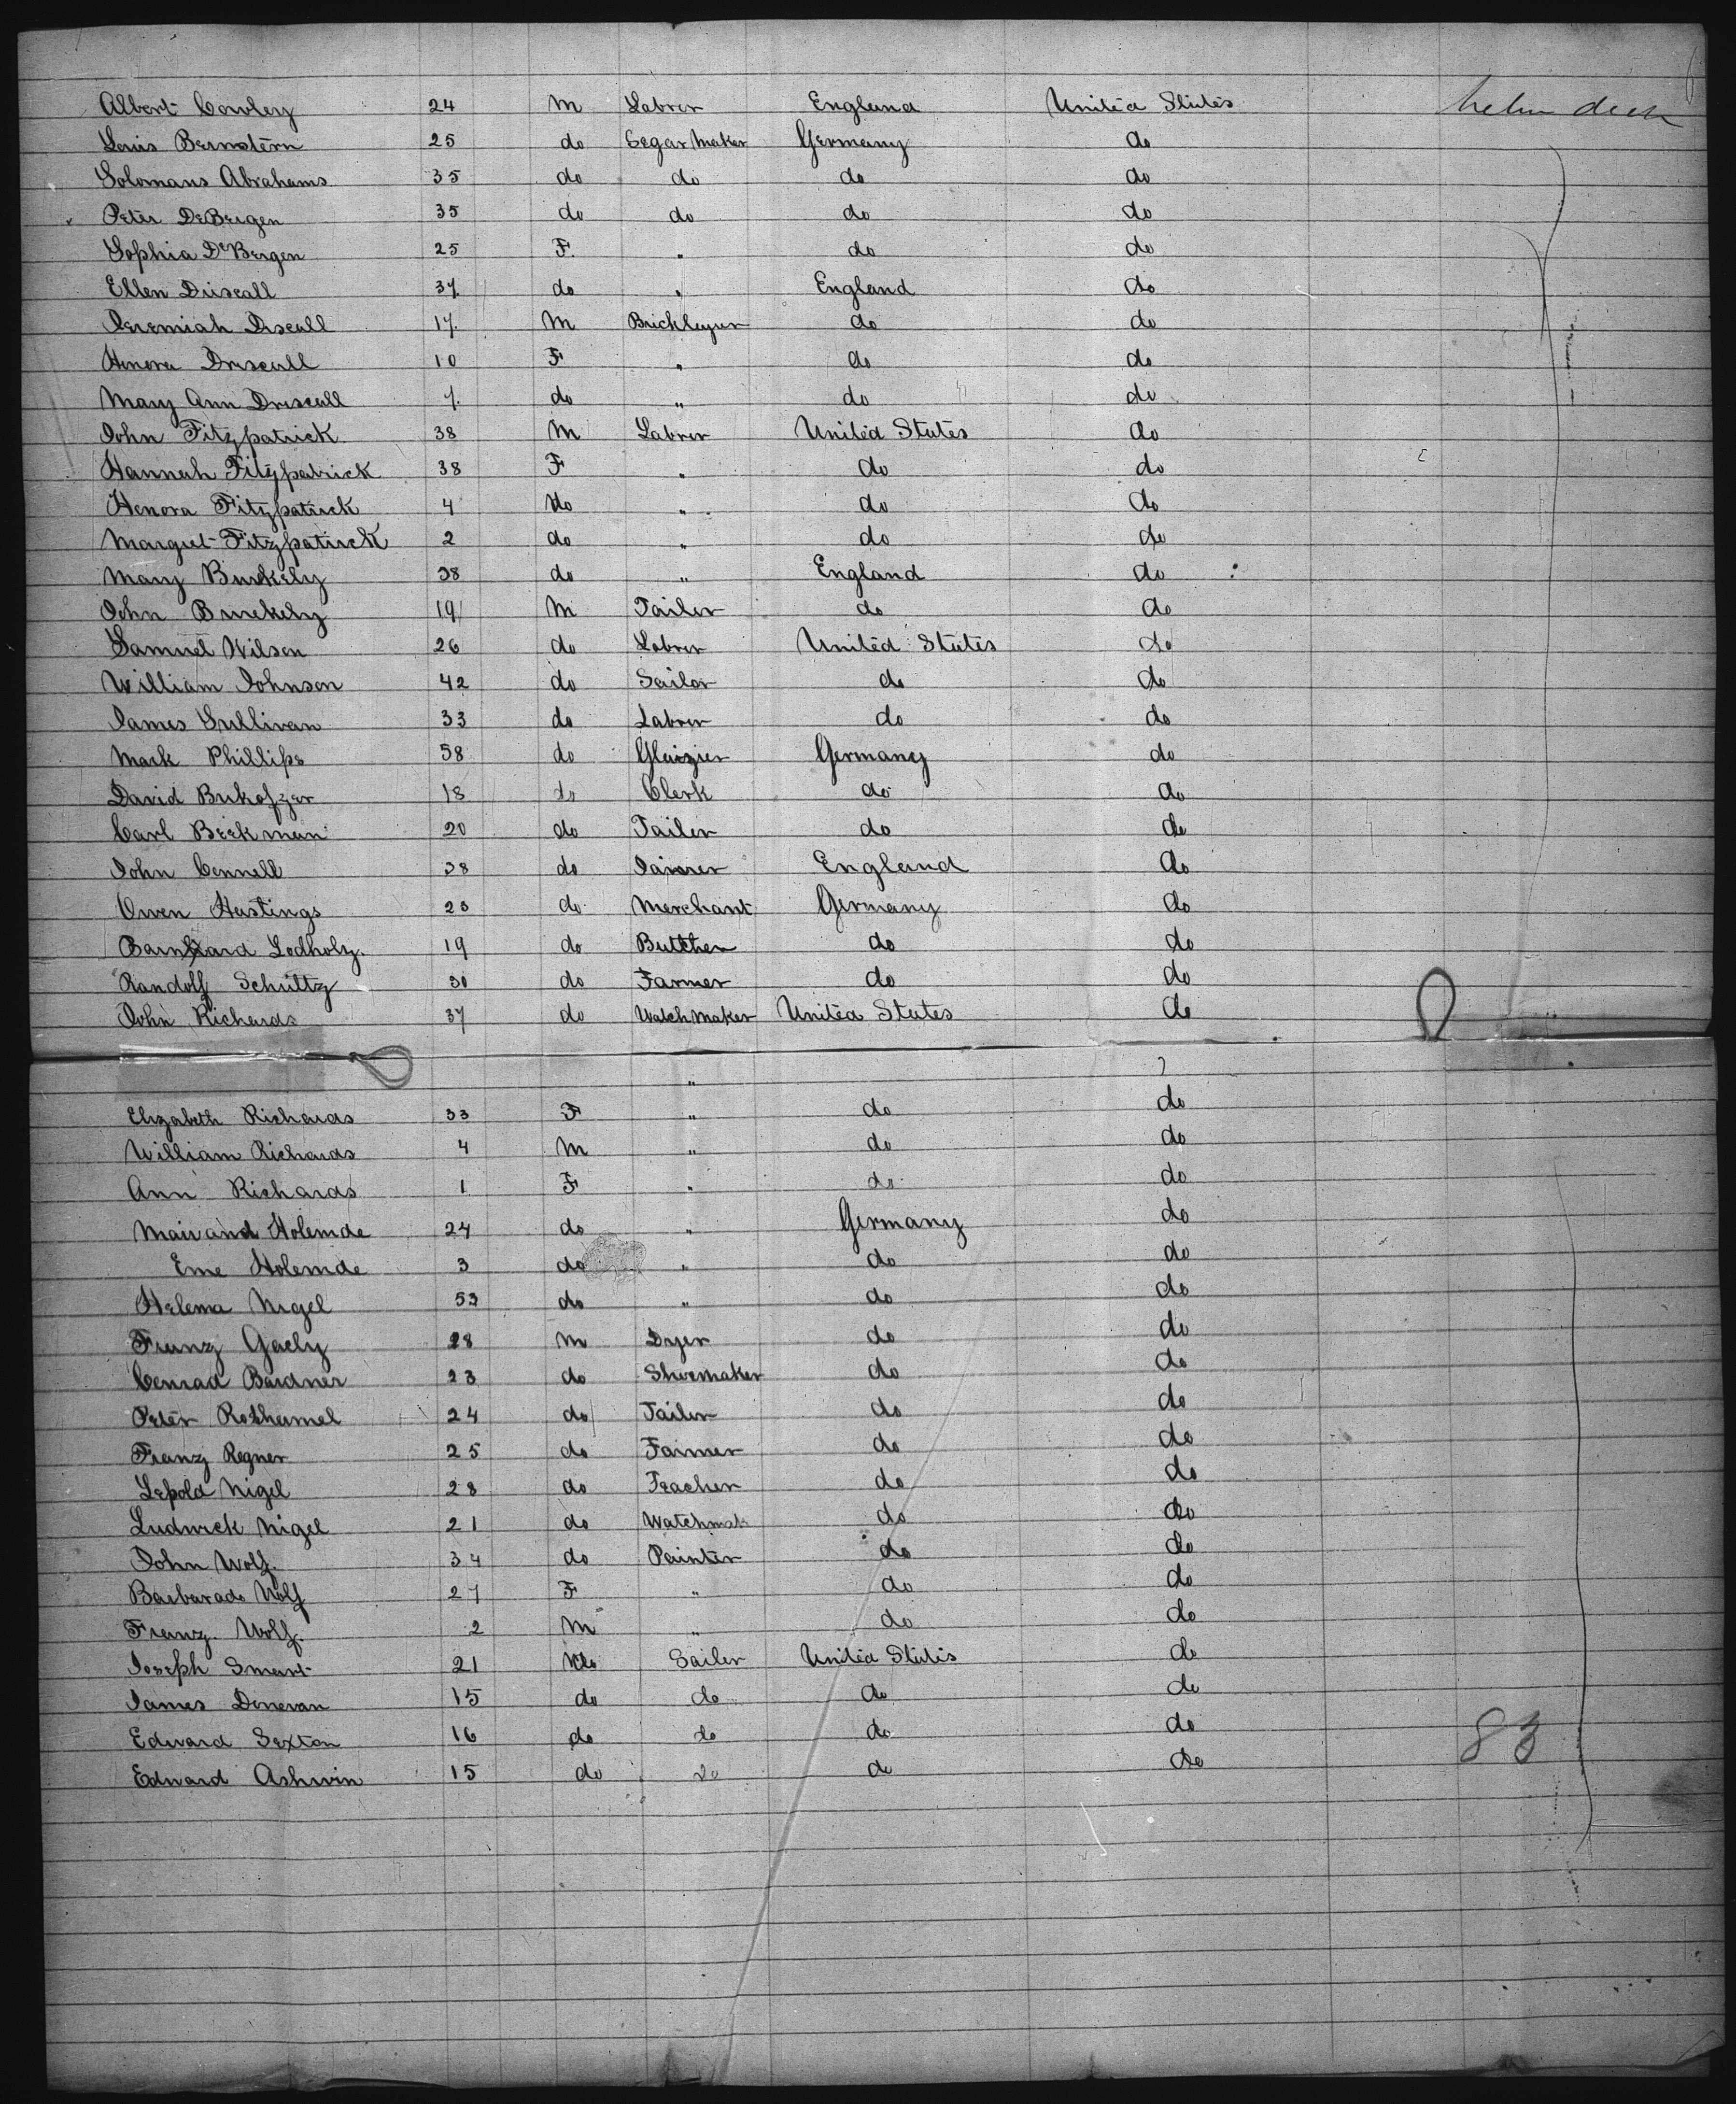 Albert Cowley 24 M Labrer England United States
Louis Bernstern 25 do Segar Maker Germany do
Solomans Abrahams 35 do do do do
Peter DeBergen 35 do do do do
Sophia DeBergen 25 F. " do do
Ellen Driscall 37 do " England do
Jeremiah Driscall 17 M Bricklayer do do
Henora Driscall 10 F " do do
Mary Ann Driscall 7 do " do do
John Fitzpatrick 38 M Labrer United States do
Hannah Fitzpatrick 38 F " do do
Henora Fitzpatrick 4 do " do do
Margret Fitzpatrick 2 do " do do
Mary Buckely 38 do " England do
John Buckely 19 M Tailer do do
Samuel Wilson 26 do Labrer United States do
William Johnson 42 do Sailor do do
James Sullivan 33 do Labrer do do
Mark Phillips 58 do Glaizier Germany do
David Bukofzer 18 do Clerk do do
Carl Beekman 20 do Tailer do do
John Connell 38 do England do
Owen Hastings 23 do Merchant Germany do
Barnhard Ledholz. 19 do Buttcher do do
Randolf Schultz 30 do Farmer do do
John Richards 37 do Watch Maker United States do
"
Elizabeth Richards 33 F " do do
William Richards 4 M " do do
Ann Richards 1 F " do do
Holemde 24 do " Germany do
Eme Holemde 3 do " do do
Helema Nigel 53 do " do do
Franz Gaely 28 M Dyer do do
Conrad Bardner 23 do Shoemaker do do
Peter Rothermel 24 do Tailer do do
Franz Regner 25 do Farmer do do
Lepold Nigel 28 do Teacher do do
Ludwick Nigel 21 do Watchmak do do
John Wolf. 34 do Painter do do
Barbarade Wolf 27 F " do do
Franz. Wolf. 2 M " do do
Joseph Smart 21 do Sailer United States do
James Donevan 15 do do do do
Edward Sexton 16 do do do do
83
Edward Ashwin 15 do do do do